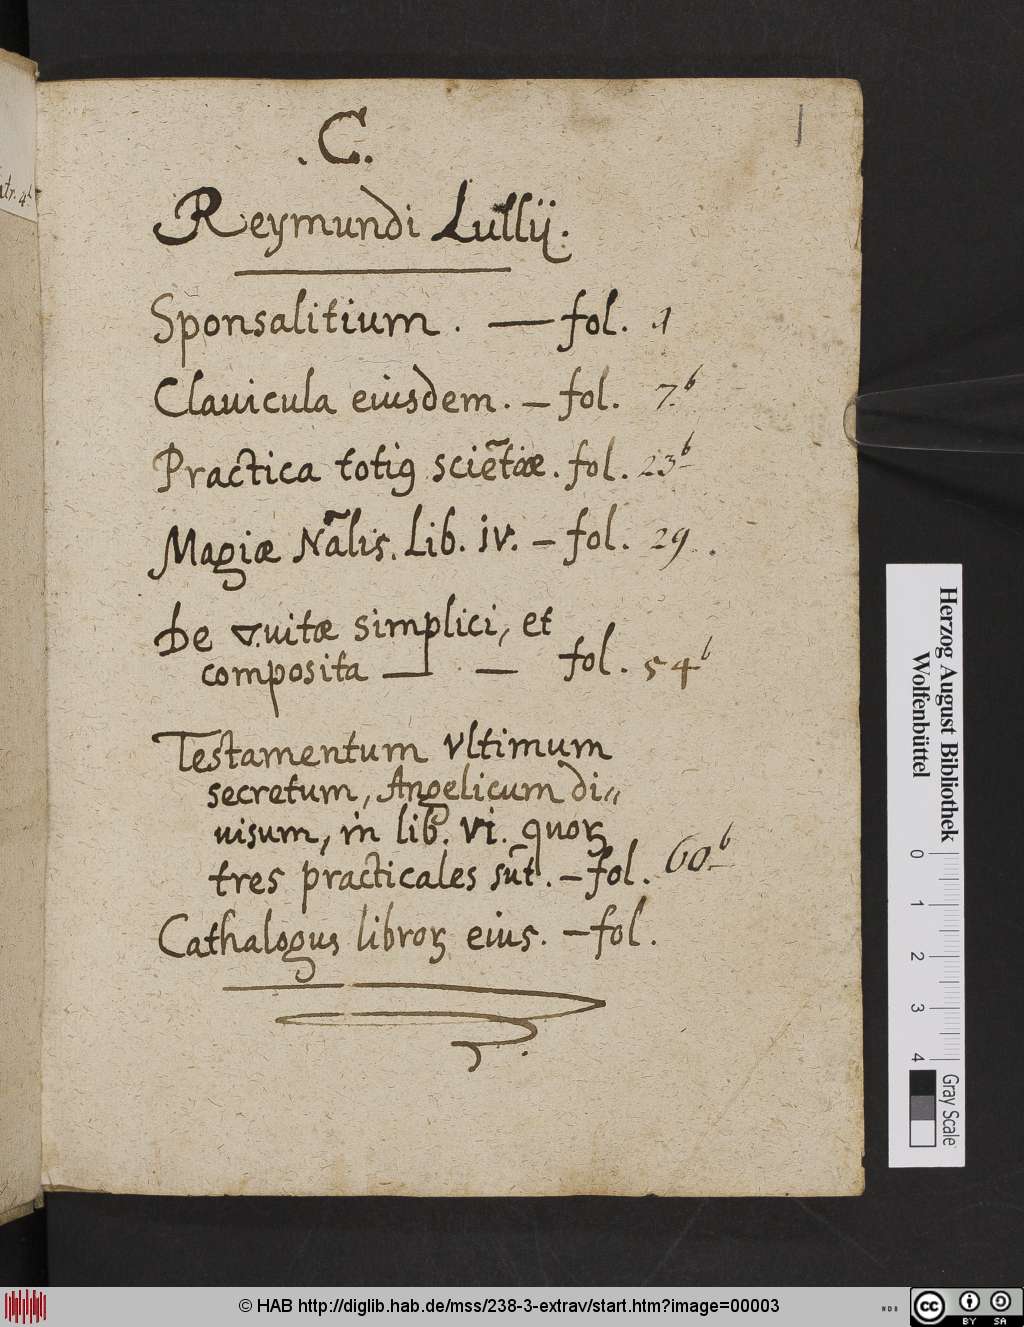 .C.
1
Reymundi Lullij.
Sponsalitium. — fol. 1
Clauicula eiusdem. – fol. 7.b
Practica totiꝰ sciẽtiæ. fol. 23b
Magiæ Nãlis. Lib. iv. – fol. 29.
De q.uitæ simplici, et
composita — — fol. 54b
Testamentum vltimum
secretum, Angelicum di„
uisum, in libꝰ. vi. quoꝝ
tres practicales sũt. – fol. 60b
Cathalogus libroꝝ eius. – fol.
Herzog August Bibliothek
Wolfenbüttel
0 1 2 3 4
Gray Scale
© HAB http://diglib.hab.de/mss/238-3-extrav/start.htm?image=00003
cc BY SA